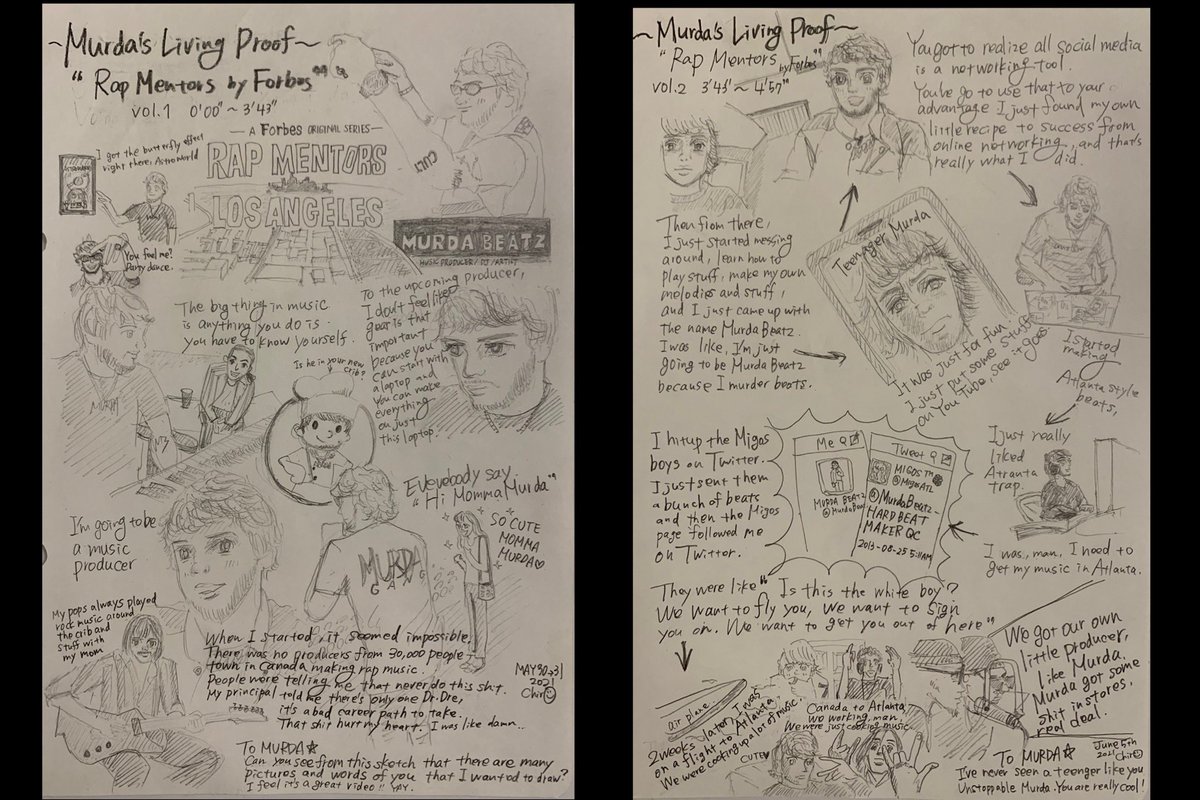 ~Murda's Living Proof~
"Rap Mentors by Forbes"
vol.1 0'00" ~ 3'43"
— A Forbes ORIGINAL SERIES —
RAP MENTORS
LOS ANGELES
I got the butterfly effect
right there, AstroWorld
CULT
MURDA
MURDA BEATZ
MUSIC PRODUCER / DJ / ARTIST
You feel me?
Party dance.
The big thing in music
is anything you do is
you have to know yourself.
To the upcoming producer,
I don't feel like
gear is that
important
because you
can start with
a laptop and
you can make
everything
on just
this laptop.
MURDA
Is he in your new
crib?
I'm going to be
a music
producer
Evevebody say
"Hi Momma Murda"
SO CUTE
MOMMA
MURDA♡
MURDA
GANG
My pops always played
rock music around
the crib and
stuff with
my mom
When I started, it seemed impossible.
There was no producers from 30,000 people
town in Canada making rap music.
People were telling me that never do this shit.
My principal told me there's only one Dr.Dre,
it's a bad career path to take.
That shit hurt my heart. I was like damn...
MAY30→31
2021
Chir☺
To MURDA☆
Can you see from this sketch that there are many
pictures and words of you that I wanted to draw?
I feel it's a great video!! YAY.
~Murda's Living Proof~
"Rap Mentors by Forbes"
vol.2 3'43" ~ 4'57"
You got to realize all social media
is a networking tool.
You've go to use that to your
advantage I just found my own
little recipe to success from
online notworking, and that's
really what I did.
Then from there,
I just started messing
around, learn how to
play stuff, make my own
melodies and stuff,
and I just came up with
the name MurdaBeatz.
I was like, I'm just
going to be Murda Beatz
because I murder beats.
Teenger Murda
It was just for fun
I just put some stuff
on You Tube, see it goes
I started
making
Atlanta style
beats,
I just really
liked
Atranta
trap.
I was, man, I need to
get my music in Atlanta.
I hit up the Migos
boys on Twitter.
I just sent them
a bunch of beats
and then the Migos
page followed me
on Twitter.
Me
MURDA BEATZ
@MurdaBeatz
Tweet
MIGOS TM
@MigosATL
@MurdaBeatz-
HARD BEAT
MAKER QC
2013-08-25 5:11AM
They were like "Is this the white boy?
We want to fly you, We want to sign
you on. We want to get you out of here"
air plane
2weeks later, I was
on a flight to Atlanta.
We were cooking up a lot of music.
Canada to Atlanta,
we working, man,
We were just cooking music
CUTE♥
We got our own
little producer,
like Murda.
Murda got some
shit in stores,
real deal.
June 5th
2021
Chir☺
To MURDA☆
I've never seen a teenger like you
Unstoppable Murda. You are really cool!